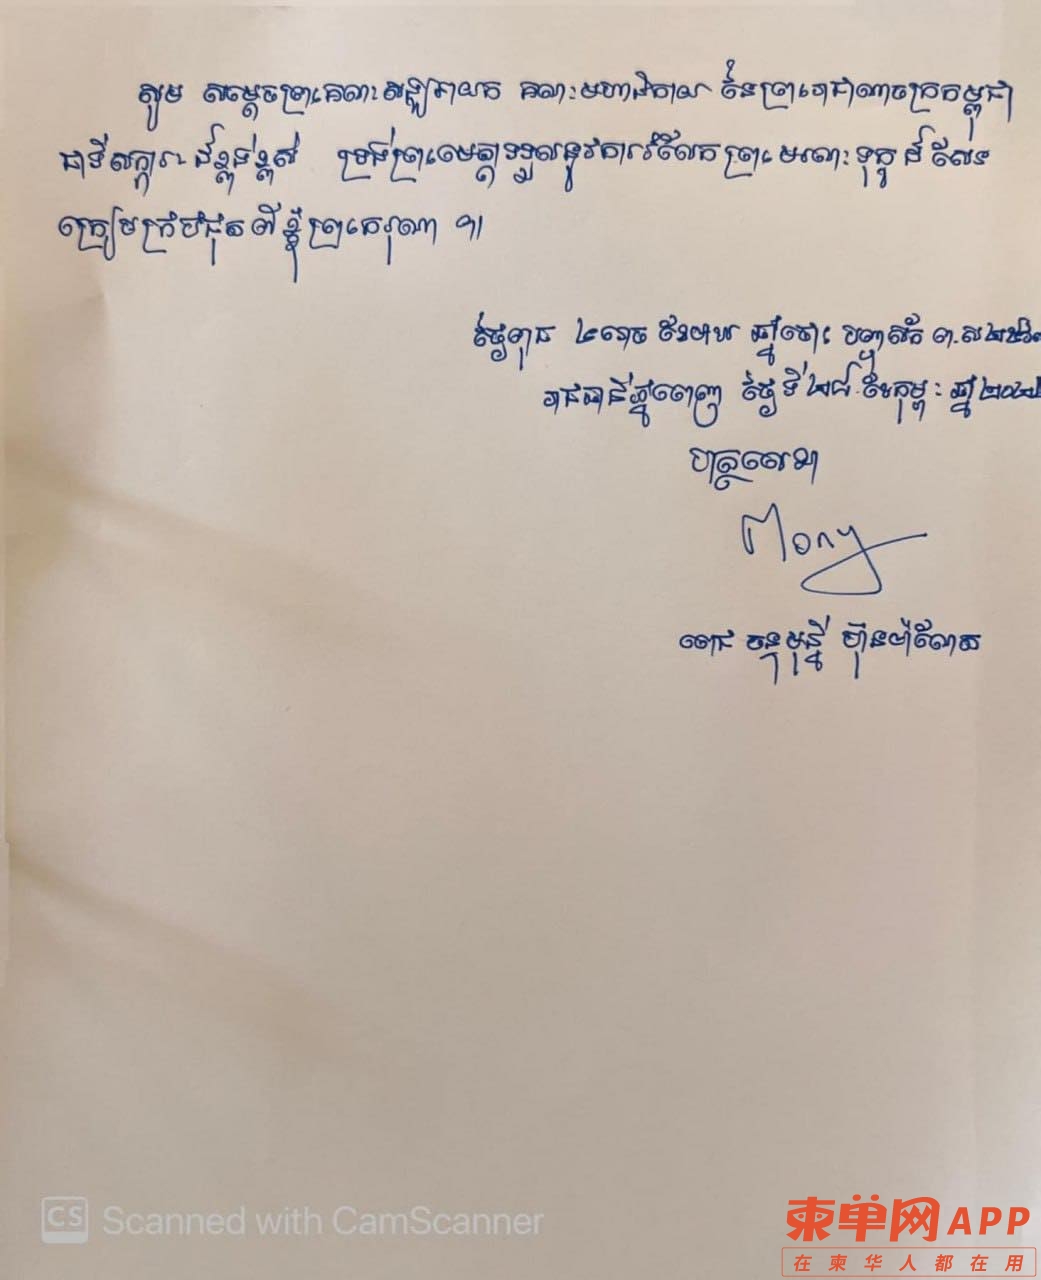 សូម សម្តេចព្រះគណៈសង្ឃនាយក គណៈមហានិកាយ នៃព្រះរាជាណាចក្រកម្ពុជា
ជាទីសក្ការៈដ៏ខ្ពង់ខ្ពស់ ទ្រង់ព្រះមេត្តាទទួលនូវការរំលែកព្រះមរណៈទុក្ខដ៏សែន
ក្រៀមក្រំបំផុតពីខ្ញុំព្រះករុណា ។
ថ្ងៃពុធ រោច ឆ្នាំថោះ បញ្ចស័ក ព.ស
រាជធានីភ្នំពេញ ថ្ងៃទី២៨ ខែកុម្ភៈ ឆ្នាំ២០២
Mony
ពេជ ចន្ទមុន្នី ហ៊ុនម៉ាណែត
CS Scanned with CamScanner
柬单网APP
在柬华人都在用